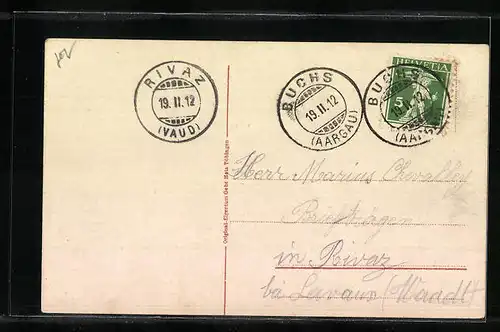 RIVAZ
19. II. 12
(VAUD)
BUCHS
19. II. 12
(AARGAU)
HELVETIA
5
BUCHS
12
(AARGAU)
Herr Marius Chevalley
Briefträger
in Rivaz
bei Lavaux (Waadt)
Original-Eigentum Gebr. Metz Tübingen